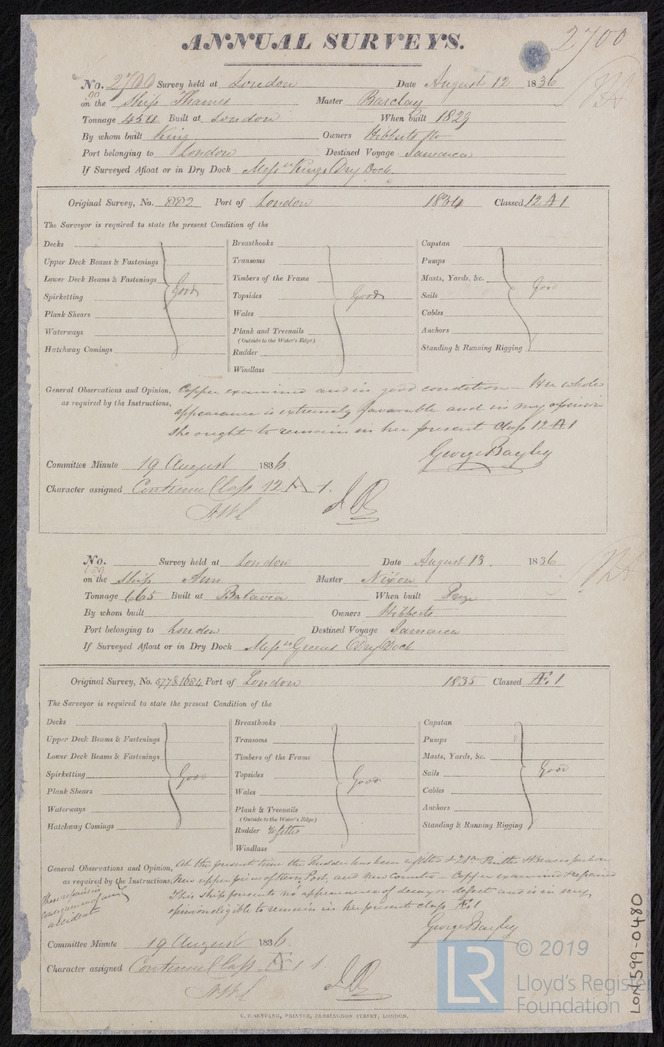 ANNUAL SURVEYS.
2700
No. 2700 Survey held at London Date August 12 1836
on the Ship Thames Master Barclay
Tonnage 454 Built at London When built 1829
By whom built King Owners Hibberts
Port belonging to London Destined Voyage Jamaica
If Surveyed Afloat or in Dry Dock Messrs Kings Dry Dock.
Original Survey, No. 882 Port of London 1834 Classed 12 A 1
The Surveyor is required to state the present Condition of the
Decks
Upper Deck Beams & Fastenings
Lower Deck Beams & Fastenings
Spirketting
Plank Shears
Waterways
Hatchway Comings
Good
Breasthooks
Transoms
Timbers of the Frame
Topsides
Wales
Plank and Treenails
(Outside to the Water's Edge)
Rudder
Windlass
Good
Capstan
Pumps
Masts, Yards, &c.
Sails
Cables
Anchors
Standing & Running Rigging
Good
General Observations and Opinion, Copper examined and in good condition - Her whole
as required by the Instructions, appearance is extremely favorable and in my opinion
She ought to remain in her present Class 12 A 1
George Bayley
Committee Minute 19 August 1836
Character assigned Continue Class 12 A 1.
No. Survey held at London Date August 13. 1836
on the Ship Ann Master Nixon
Tonnage 665 Built at Batavia When built
By whom built Owners Hibberts
Port belonging to London Destined Voyage Jamaica
If Surveyed Afloat or in Dry Dock Messrs Greens Dry Dock
Original Survey, No. 577 & 1684 Port of London 1835 Classed Æ 1
The Surveyor is required to state the present Condition of the
Decks
Upper Deck Beams & Fastenings
Lower Deck Beams & Fastenings
Spirketting
Plank Shears
Waterways
Hatchway Comings
Good
Breasthooks
Transoms
Timbers of the Frame
Topsides
Wales
Plank & Treenails
(Outside to the Water's Edge)
Rudder refitted
Windlass
Good
Capstan
Pumps
Masts, Yards, &c.
Sails
Cables
Anchors
Standing & Running Rigging
Good
General Observations and Opinion, At the present time the Rudder has been refitted
as required by the Instructions, New upper piece of Stern Post, and New Counter - Copper examined & repaired
This Ship presents no appearance of decay or defect and is in my
opinion eligible to remain in her present class Æ 1
These repairs in consequence of accident
George Bayley
Committee Minute 19 August 1836.
Character assigned Continue Class Æ 1
PRINTER, LONDON.
LR © 2019
Lloyd's Register
Foundation
LON 599-0480